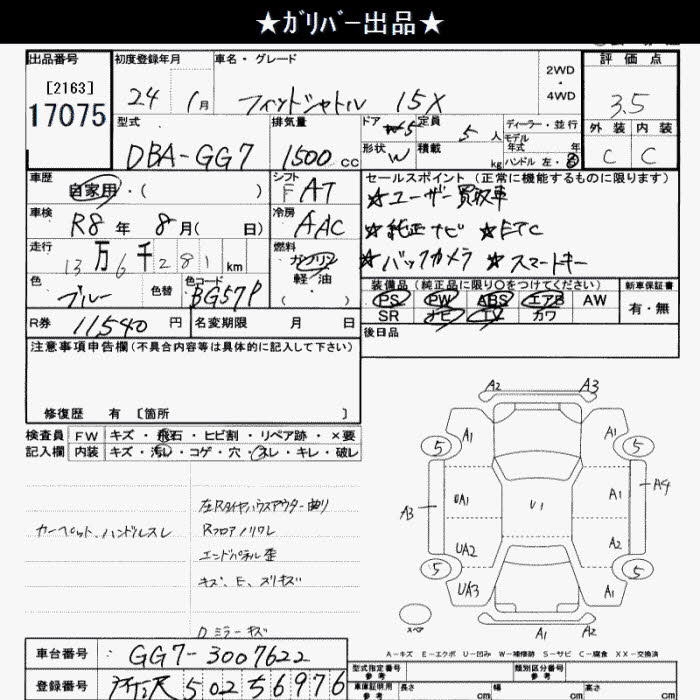 ★ｶﾞﾘﾊﾞｰ出品★
出品番号
[2163]
17075
初度登録年月
24 1月
車名・グレード
フィットシャトル 15X
2WD
・
4WD
評価点
3.5
外装 内装
C C
型式
DBA-GG7
排気量
1500 cc
ドア 5
形状 W
定員 5 人
積載 kg
ディーラー・並行
モデル
年式 年
ハンドル 左・右
車歴
自家用・( )
シフト
F AT
セールスポイント (正常に機能するものに限ります)
★ユーザー買取車
★純正ナビ ★ETC
★バックカメラ ★スマートキー
車検
R8年 8月( 日)
冷房
AAC
走行
13万6千281km
燃料
ガソリン
軽・油
( )
色
ブルー
色替
色コード
BG57P
装備品(純正品に限り○をつけてください)
PS PW ABS エアB AW
SR ナビ TV カワ
新車保証書
有・無
R券 11540 円
名変期限 月 日
後日品
注意事項申告欄(不具合内容等は具体的に記入して下さい)
修復歴 有 [箇所 ]
検査員
記入欄
FW キズ・飛石・ヒビ割・リペア跡・×要
内装 キズ・汚レ・コゲ・穴・スレ・キレ・破レ
カーペット、ハンドルスレ
左Rタイヤハウスアウター曲り
Rフロアノリワレ
エンドパネル歪
キズ、E、スリキズ
Dミラーキズ
A2 A3
A1 A1
5 5
A3 UA1 U1 A1 A4
UA2 A2
5 5
UA3 A1
スペア
A1 A2
A-キズ E-エクボ U-凹み W-補修跡 S-サビ C-腐食 XX-交換済
車台番号 GG7-3007622
登録番号 所沢 502 す 6976
型式指定番号
参考
類別区分番号
参考
車庫証明用
参考
長さ cm 幅 cm 高さ cm